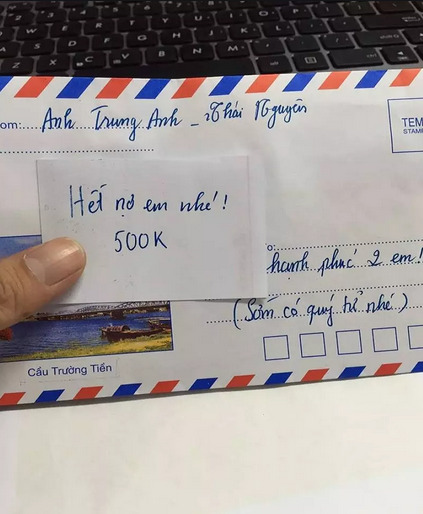 om: Anh Trung Anh - Thái Nguyên
TEM
STAMP
Hết nợ em nhé!
500K
o:
hạnh phúc 2 em!
(Sớm có quý tử nhé)
Cầu Trường Tiền